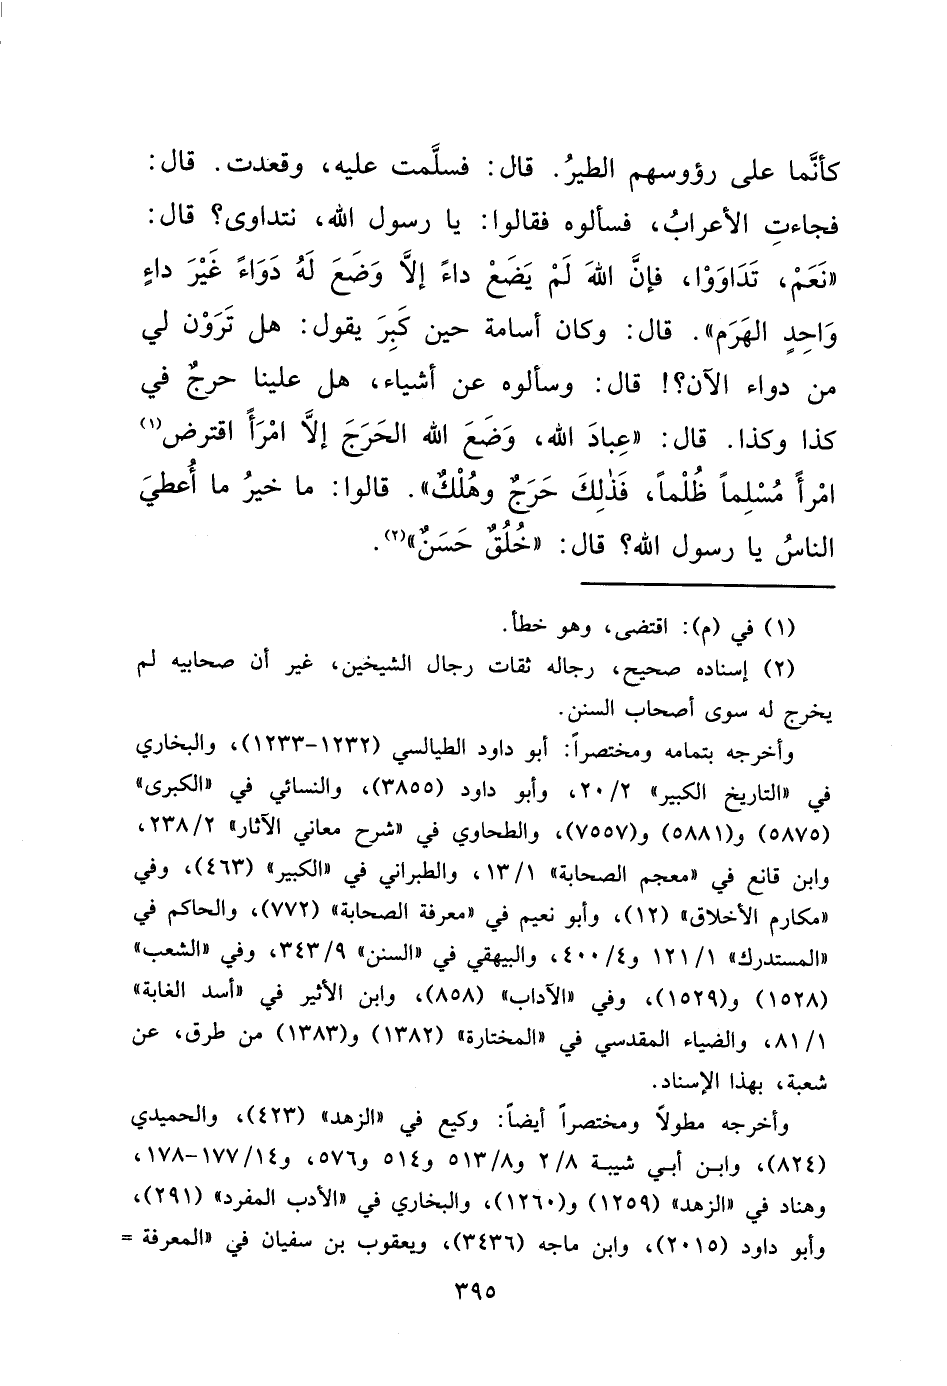 كأنَّما على رؤوسهم الطيرُ. قال: فسلَّمت عليه، وقعدت. قال:
فجاءتِ الأعرابُ، فسألوه فقالوا: يا رسول الله، نتداوى؟ قال:
«نَعَمْ، تَدَاوَوْا، فإنَّ اللهَ لَمْ يَضَعْ داءً إلاَّ وَضَعَ لَهُ دَوَاءً غَيْرَ داءٍ
وَاحِدٍ الهَرَمِ». قال: وكان أسامة حين كَبِرَ يقول: هل تَرَوْن لي
من دواء الآن؟! قال: وسألوه عن أشياء، هل علينا حرجٌ في
كذا وكذا. قال: «عِبادَ الله، وَضَعَ الله الحَرَجَ إلاَّ امْرَأً اقترض(١)
امْرأً مُسْلِماً ظُلْماً، فَذٰلِكَ حَرَجٌ وهُلْكٌ». قالوا: ما خيرُ ما أُعطيَ
الناسُ يا رسول الله؟ قال: «خُلُقٌ حَسَنٌ»(٢).
(١) في (م): اقتضى، وهو خطأ.
(٢) إسناده صحيح، رجاله ثقات رجال الشيخين، غير أن صحابيه لم
يخرج له سوى أصحاب السنن.
وأخرجه بتمامه ومختصراً: أبو داود الطيالسي (١٢٣٢-١٢٣٣)، والبخاري
في «التاريخ الكبير» ٢٠/٢، وأبو داود (٣٨٥٥)، والنسائي في «الكبرى»
(٥٨٧٥) و(٥٨٨١) و(٧٥٥٧)، والطحاوي في «شرح معاني الآثار» ٢٣٨/٢،
وابن قانع في «معجم الصحابة» ١٣/١، والطبراني في «الكبير» (٤٦٣)، وفي
«مكارم الأخلاق» (١٢)، وأبو نعيم في «معرفة الصحابة» (٧٧٢)، والحاكم في
«المستدرك» ١٢١/١ و٤٠٠/٤، والبيهقي في «السنن» ٣٤٣/٩، وفي «الشعب»
(١٥٢٨) و(١٥٢٩)، وفي «الآداب» (٨٥٨)، وابن الأثير في «أسد الغابة»
٨١/١، والضياء المقدسي في «المختارة» (١٣٨٢) و(١٣٨٣) من طرق، عن
شعبة، بهذا الإسناد.
وأخرجه مطولاً ومختصراً أيضاً: وكيع في «الزهد» (٤٢٣)، والحميدي
(٨٢٤)، وابن أبي شيبة ٢/٨ و٥١٣/٨ و٥١٤ و٥٧٦، و١٧٧/١٤-١٧٨،
وهناد في «الزهد» (١٢٥٩) و(١٢٦٠)، والبخاري في «الأدب المفرد» (٢٩١)،
وأبو داود (٢٠١٥)، وابن ماجه (٣٤٣٦)، ويعقوب بن سفيان في «المعرفة =
٣٩٥